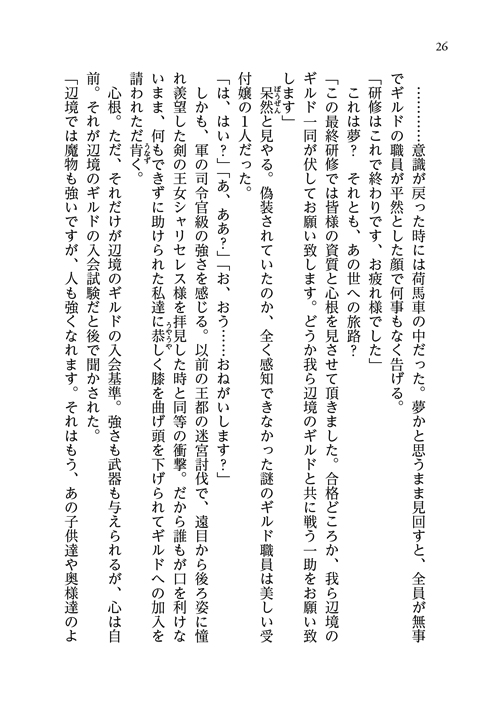 26
…………意識が戻った時には荷馬車の中だった。夢かと思うまま見回すと、全員が無事
でギルドの職員が平然とした顔で何事もなく告げる。
「研修はこれで終わりです、お疲れ様でした」
これは夢？　それとも、あの世への旅路？
「この最終研修では皆様の資質と心根を見させて頂きました。合格どころか、我ら辺境の
ギルド一同が伏してお願い致します。どうか我ら辺境のギルドと共に戦う一助をお願い致
します」
呆然と見やる。偽装されていたのか、全く感知できなかった謎のギルド職員は美しい受
付嬢の1人だった。
「は、はい？」「あ、ああ？」「お、おう……おねがいします？」
しかも、軍の司令官級の強さを感じる。以前の王都の迷宮討伐で、遠目から後ろ姿に憧
れ羨望した剣の王女シャリセレス様を拝見した時と同等の衝撃。だから誰もが口を利けな
いまま、何もできずに助けられた私達に恭しく膝を曲げ頭を下げられてギルドへの加入を
請われただ肯く。
心根。ただ、それだけが辺境のギルドの入会基準。強さも武器も与えられるが、心は自
前。それが辺境のギルドの入会試験だと後で聞かされた。
「辺境では魔物も強いですが、人も強くなれます。それはもう、あの子供達や奥様達のよ